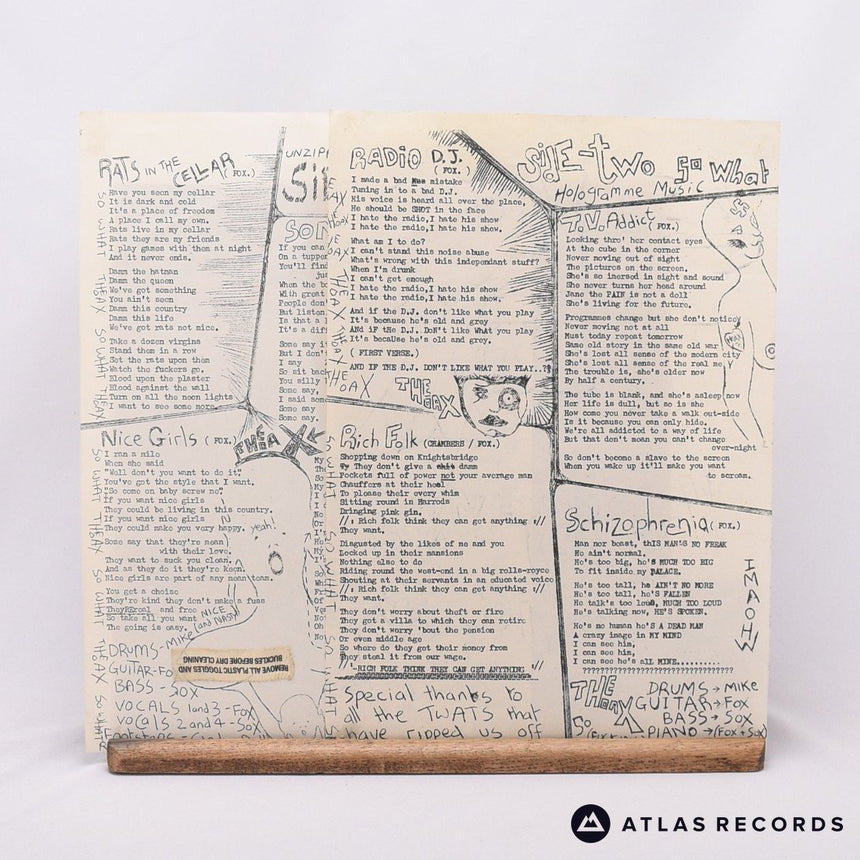 RATS IN THE CELLAR (FOX.)
Have you seen my cellar
It is dark and cold
It's a place of freedom
A place I call my own.
Rats live in my cellar
Rats they are my friends
I play games with them at night
And it never ends.
Damn the batman
Damn the queen
We've got something
You ain't seen
Damn this country
Damn this life
We've got rats not mice.
Take a dozen virgins
Stand them in a row
Set the rats upon them
Watch the fuckers go.
Blood upon the plaster
Blood against the wall
Turn on all the noon lights
I want to see some more.
SO WHAT THEAX SO WHAT THEAX
Nice Girls (FOX.)
THE A X
I ran a mile
When she said
"Well don't you want to do it"
You've got the style that I want,
"So come on baby screw no"
If you want nice girls
They could be living in this country.
If you want nice girls
They could make you very happy.
yeah!
Some say that they're mean
with their love.
They want to suck you clean,
And as they do it they're keen.
Nice girls are part of any mean team.
You get a choice
They're kind they don't make a fuss
TheyREreal and free
NICE (and NASTY)
So take all you want
The going is easy.
DRUMS-Mike
GUITAR-Fox
BASS - SOX
VOCALS 1 and 3 - Fox
VOCALS 2 and 4 - Sox
REMOVE ALL PLASTIC TOGGLES AND
BUCKLES BEFORE DRY CLEANING
SO WHAT THEAX SO WHAT THEAX SO WHAT
UNZIPP
If you can
On a tuppen
You'll fin
When the b
With great
People don'
But listen
Is that a l
It's a diff
Some say i
But I don't
I say
So sit back
You silly
Some say
I said som
Some say
Some say
RADIO D.J.
(FOX.)
I made a bad mistake
Tuning in to a bad D.J.
His voice is heard all over the place,
He should be SHOT in the face
I hate the radio,I hate his show,
I hate the radio,I hate his show.
What am I to do?
I can't stand this noise abuse
What's wrong with this independant stuff?
When I'm drunk
I can't get enough
I hate the radio,I hate his show,
I hate the radio,I hate his show.
And if the D.J. don't like what you play
It's because he's old and grey
ANd if tHe D.J. DoN't liKe WHat you PLay
It's becaUse he's old and grey.
(FIRST VERSE.)
AND IF THE D.J. DON'T LIKE WHAT YOU PLAY..?!
THE hoAX
Rich Folk (CHAMBERS / FOX.)
Shopping down on Knightsbridge
They don't give a shit damn
Pockets full of power not your average man
Chauffers at their heal
To please their every whim
Sitting round in Harrods
Dringing pink gin.
// Rich folk think they can get anything //
They want.
Disgusted by the likes of me and you
Locked up in their mansions
Nothing else to do
Riding round the west-end in a big rolls-royce
Shouting at their servants in an educated voice
// Rich folk think they can get anything //
They want.
They don't worry about theft or fire
They got a villa to which they can retire
They don't worry 'bout the pension
Or even middle age
So where do they get their money from
They steal it from our wage.
//-RICH FOLK THINK THEY CAN GET ANYTHING //
Special thanks to
all the TWATS that
have ripped us off
SidE-two So what
Hologramme Music
T.V. Addict (FOX.)
Looking thro' her contact eyes
At the cube in the corner
Never moving out of sight
The pictures on the screen,
She's so inersed in sight and sound
She never turns her head around
Jane the PAIN is not a doll
She's living for the future.
Programmes change but she don't notice
Never moving not at all
Must today repeat tomorrow
Same old story in the same old war
She's lost all sense of the modern city
She's lost all sense of the real me
The trouble is, she's older now
By half a century.
The tube is blank, and she's asleep now
Her life is dull, but so is she
How come you never take a walk out-side
Is it because you can only hide.
We're all addicted to a way of life
But that don't mean you can't change
over-night
So don't become a slave to the screen
When you wake up it'll make you want
to scream.
Schizophrenia (FOX.)
Man nor beast, thIS MAN'S NO FREAK
He ain't normal.
He's too big, he'S MUCH TOO BIG
To fit inside my PALACE.
He's too tall, he AIN'T NO MORE
He's too tall, he'S FALLEN
He talk's too loud, MUCH TOO LOUD
He's talking now, HE'S SPOKEN.
He's no human he'S A DEAD MAN
A crazy image in MY MIND
I can see him,
I can see him,
I can see he's all MINE.........
????????????????????????????????
THE HoAX
So
DRUMS → Mike
GUITAR → Fox
BASS → Sox
PIANO → (Fox + Sox)
ATLAS RECORDS